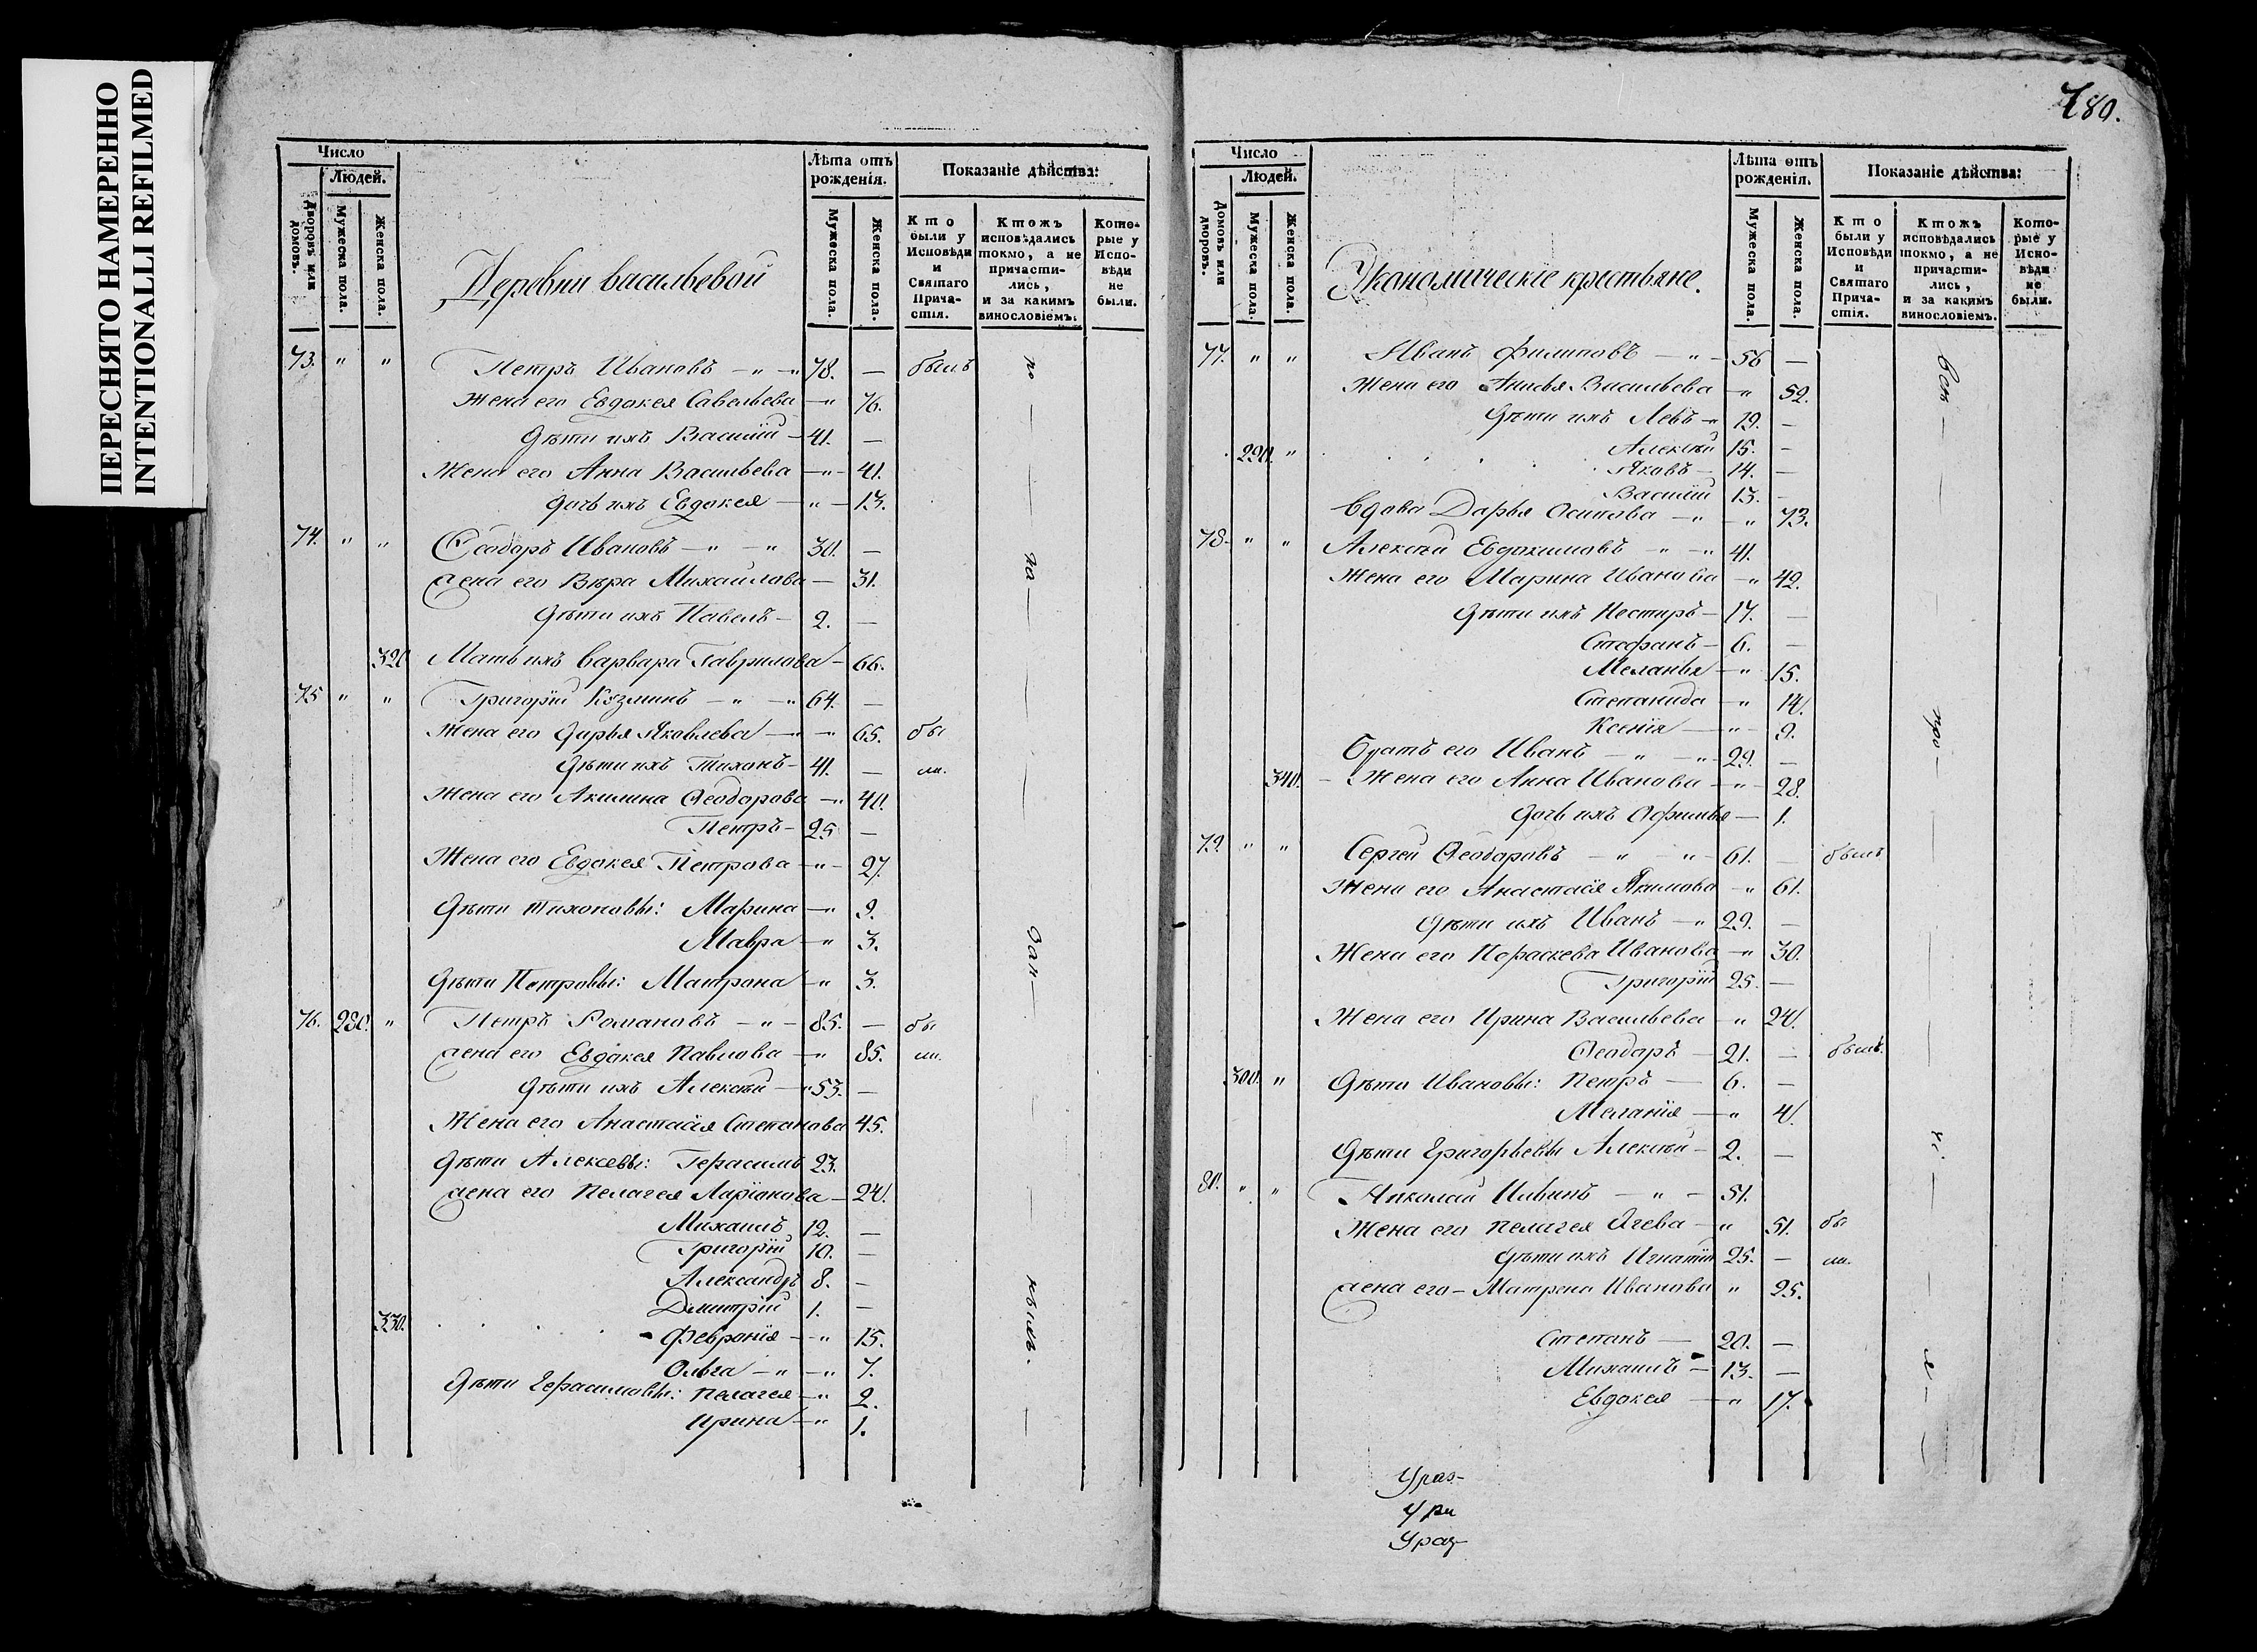 ПЕРЕСНЯТО НАМЕРЕННО
INTENTIONALLI REFILMED
Число
Людей.
Дворовъ или домовъ.
Мужеска пола.
Женска пола.
Деревни васильевой
Лѣта отъ рожденія.
Мужеска пола.
Женска пола.
Показаніе дѣйства:
Кто были у Исповѣди и Святаго Прича-стія.
Ктожъ исповѣдались токмо, а не причасти-лись, и за какимъ винословіемъ.
Кото-рые у Испо-вѣди не были.
73. " " Петръ Ивановъ — " — " 78. — былъ
Жена его Евдокея Савельева — " 76.
Дѣти ихъ Василій — 41. —
Жена его Анна Васильева — " — 41.
дочь ихъ Евдокея — " — 13.
74. " " Ѳеодоръ Ивановъ — " — " 30. —
жена его Вѣра Михаилова — 31.
Дѣти ихъ Павелъ — 2. —
320 Мать ихъ варвара Гаврилова — 66.
75 " " Григорій Козминъ — " — " 64. —
Жена его Дарья Яковлева — " — 65. бы
Дѣти ихъ Тихонъ — 41. — ли.
Жена его Акилина Ѳеодорова — " 40.
Петръ — 25 —
Жена его Евдокея Петрова — " — 27.
Дѣти Тихоновы: Марина — " 9.
Мавра — " 3.
Дѣти Петровы: Матрона — " 3.
76. 280. " Петръ Романовъ — " — 85. — бы
жена его Евдокея Павлова — " 85. ли.
Дѣти ихъ Алексѣй — " 53. —
Жена его Анастасія Степанова 45.
Дѣти Алексевы: Герасимъ 23.
жена его Пелагея Ларіонова — 24.
Михаилъ 12. —
Григорій 10. —
Александръ 8. —
Дмитрій 1. —
330. Февронія — " 15.
Ольга — " — " 7.
Дѣти Герасимовы: Пелагея — " 2.
Ирина — " 1.
780.
Число
Людей.
Домовъ или дворовъ.
Мужеска пола.
Женска пола.
Экономическіе крестьяне.
Лѣта отъ рожденія.
Мужеска пола.
Женска пола.
Показаніе дѣйства:
Кто были у Исповѣди и Святаго Прича-стія.
Ктожъ исповѣдались токмо, а не причасти-лись, и за какимъ винословіемъ.
Кото-рые у Испо-вѣди не были.
77. " " Иванъ Филиповъ — " — 56 —
Жена его Анисья Васильева — " 52.
Дѣти ихъ Левъ — " 19. —
290. " Алексѣй 15. —
Яковъ — 14. —
Василій 13. —
Вдова Дарья Осипова — " — " 73.
78. " " Алексѣй Евдокимовъ — " — " 41.
Жена его Марина Иванова — " 42.
Дѣти ихъ Нестиръ — 17. —
Стефанъ — 6. —
Меланья — " 15.
Степанида — " 14.
Ксенія — " — 9.
Братъ его Иванъ — " — " — 29. —
340. — Жена его Анна Иванова — " — 28.
дочь ихъ Офимья — 1.
79. " " Сергей Ѳеодоровъ — " — " — 61. — былъ
Жена его Анастасія Якимова — " 61.
Дѣти ихъ Иванъ — " 29. —
Жена его Параскева Иванова — " 30.
Григорій 25. —
Жена его Ирина Васильева — " 24.
Ѳеодоръ — 21. — былъ.
300. " Дѣти Ивановы: Петръ — 6. —
Меланія — " 4.
Дѣти Григорьевы Алексѣй — 2. —
80. " " Николай Ильинъ — " — 51.
Жена его Пелагея — " 51. бы
Дѣти ихъ Игнатій 25. — ли.
жена его — Матрена Иванова " 25.
Степанъ — 20. —
Михаилъ — 13. —
Евдокея — " 17.